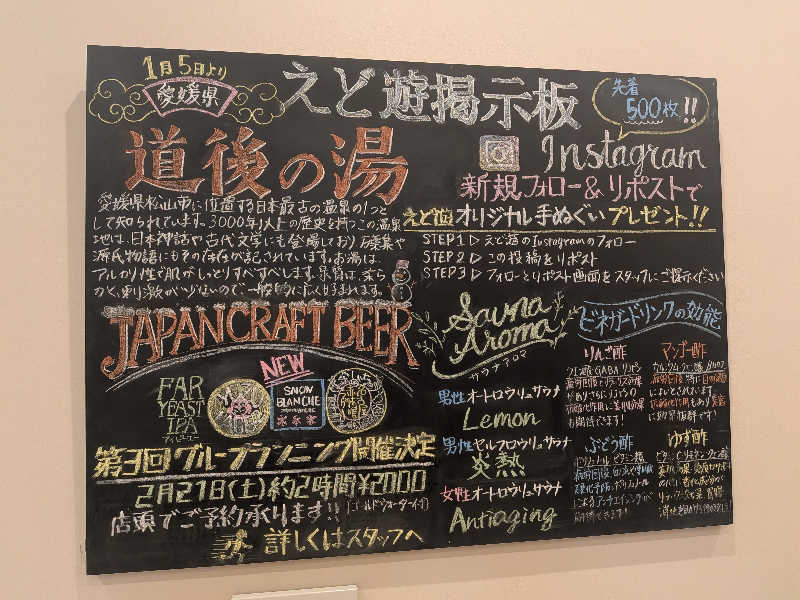 1月5日より
愛媛県
えど遊掲示板
先着
500枚!!
道後の湯
愛媛県松山市に位置する日本最古の温泉の1つと
して知られています。3000年以上の歴史を持つこの温泉
地は、日本神話や古代文学にも登場しており万葉集や
源氏物語にもその存在が記されています。お湯は、
アルカリ性で肌がしっとりすべすべします。泉質は、柔ら
かく、刺激が少ないので一般的に広く好まれます。
Instagram
新規フォロー&リポストで
えど遊オリジナル手ぬぐいプレゼント!!
STEP1▷えど遊のInstagramのフォロー
STEP2▷この投稿をリポスト
STEP3▷フォローとリポスト画面をスタッフにご提示ください
JAPAN CRAFT BEER
NEW
FAR
YEAST
IPA
SNOW
BLANCHE
第3回グループランニング開催決定
2月21日(土)約2時間¥2000
店頭でご予約承ります!!
詳しくはスタッフへ
Sauna
Aroma
サウナアロマ
男性オートロウリュサウナ
Lemon
男性セルフロウリュサウナ
炎熱
女性オートロウリュサウナ
Antiaging
ビネガードリンクの効能
りんご酢
マンゴー酢
ぶどう酢
ゆず酢